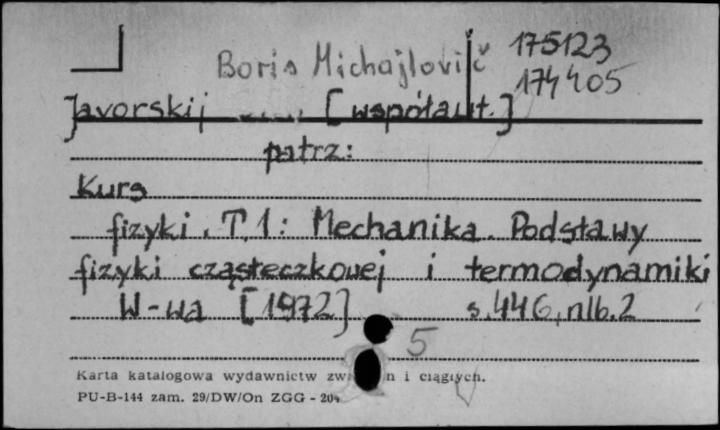 Boris Michajlovič 175123
174405
Javorskij [współaut.]
patrz:
Kurs
fizyki. T.1: Mechanika. Podstawy
fizyki cząsteczkowej i termodynamiki
W-wa [1972] s.446, nlb.2
5
Karta katalogowa wydawnictw i ciągłych.
PU-B-144 zam. 29/DW/On ZGG -